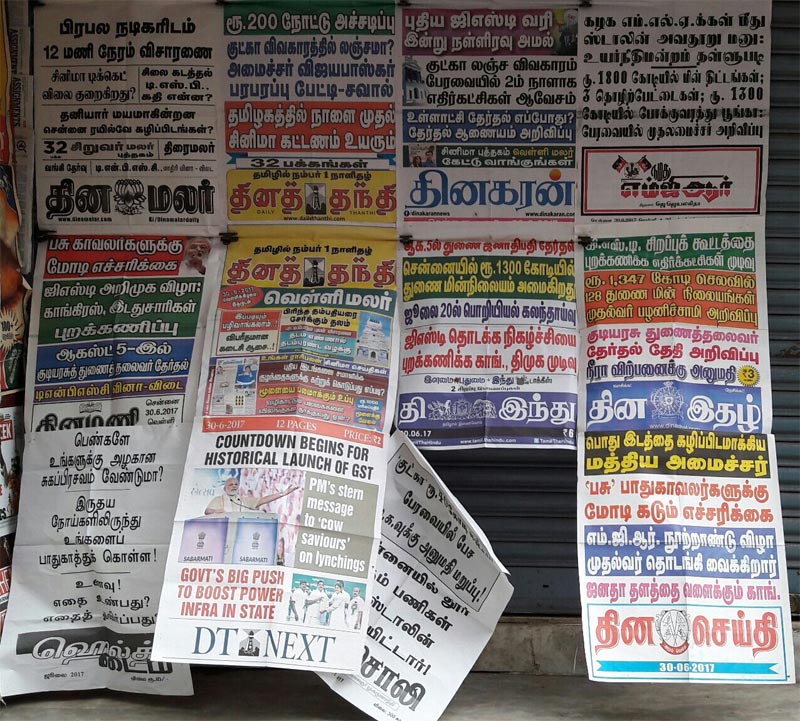 பிரபல நடிகரிடம்
12 மணி நேரம் விசாரணை
சினிமா டிக்கெட்
விலை குறைகிறது?
சிலை கடத்தல்
டி.எஸ்.பி.,
கதி என்ன?
தனியார் மயமாகின்றன
சென்னை ரயில்வே கழிப்பிடங்கள்?
32 சிறுவர் மலர் திரைமலர்
புத்தகம்
வங்கி தேர்வு டி.என்.பி.எஸ்.சி., மாதிரி வினா - விடை
தின மலர்
www.dinamalar.com
f/Dinamalardaily
ரூ.200 நோட்டு அச்சடிப்பு
குட்கா விவகாரத்தில் லஞ்சமா?
அமைச்சர் விஜயபாஸ்கர்
பரபரப்பு பேட்டி-சவால்
தமிழகத்தில் நாளை முதல்
சினிமா கட்டணம் உயரும்
32 பக்கங்கள்
தமிழில் நம்பர் 1 நாளிதழ்
தினத் தந்தி
DAILY THANTHI
www.dailythanthi.com
புதிய ஜிஎஸ்டி வரி
இன்று நள்ளிரவு அமல்
குட்கா லஞ்ச விவகாரம்
பேரவையில் 2ம் நாளாக
எதிர்கட்சிகள் ஆவேசம்
உள்ளாட்சி தேர்தல் எப்போது?
தேர்தல் ஆணையம் அறிவிப்பு
சினிமா புத்தகம் வெள்ளி மலர்
கேட்டு வாங்குங்கள்
தினகரன்
dinakarannews
www.dinakaran.com
கழக எம்.எல்.ஏ.க்கள் மீது
ஸ்டாலின் அவதூறு மனு:
உயர்நீதிமன்றம் தள்ளுபடி
ரூ. 1800 கோடியில் மின் திட்டங்கள்;
3 தொழிற்பேட்டைகள்; ரூ. 1300
கோடியில் போக்குவரத்து பூங்கா:
பேரவையில் முதலமைச்சர் அறிவிப்பு
நமது
எம்ஜிஆர்
பசு காவலர்களுக்கு
மோடி எச்சரிக்கை
ஜிஎஸ்டி அறிமுக விழா:
காங்கிரஸ், இடதுசாரிகள்
புறக்கணிப்பு
ஆகஸ்ட் 5-இல்
குடியரசுத் துணைத்தலைவர் தேர்தல்
டிஎன்பிஎஸ்சி வினா-விடை
தினமணி
சென்னை
30.6.2017
வெள்ளி
தமிழில் நம்பர் 1 நாளிதழ்
தினத் தந்தி
வெள்ளிமலர்
பிரிந்த தம்பதியரை
சேர்க்கும் தலம்
ஆக.5ல் துணை ஜனாதிபதி தேர்தல்
சென்னையில் ரூ.1300 கோடியில்
துணை மின்நிலையம் அமைகிறது
ஜூலை 20ல் பொறியியல் கலந்தாய்வு
ஜிஎஸ்டி தொடக்க நிகழ்ச்சியை
புறக்கணிக்க காங்., திமுக முடிவு
தி இந்து
30.06.17
₹6
www.tamil.thehindu.com
TamilTheHindu
ஜி.எஸ்.டி. சிறப்புக் கூட்டத்தை
புறக்கணிக்க எதிர்க்கட்சிகள் முடிவு
ரூ. 1,347 கோடி செலவில்
128 துணை மின் நிலையங்கள்
முதல்வர் பழனிச்சாமி அறிவிப்பு
குடியரசு துணைத்தலைவர்
தேர்தல் தேதி அறிவிப்பு
நீரா விற்பனைக்கு அனுமதி
₹3
தின இதழ்
பெண்களே
உங்களுக்கு அழகான
சுகப்பிரசவம் வேண்டுமா?
இருதய
நோய்களிலிருந்து
உங்களைப்
பாதுகாத்துக் கொள்ள!
உணவு!
எதை உண்பது?
ஜூலை 2017
30-6-2017 12 PAGES PRICE: ₹2
COUNTDOWN BEGINS FOR
HISTORICAL LAUNCH OF GST
PM's stern
message
to 'cow
saviours'
on lynchings
SABARMATI SABARMATI
GOVT'S BIG PUSH
TO BOOST POWER
INFRA IN STATE
DT NEXT
பேரவையில் பேச
அனுமதி மறுப்பு!
பணிகள்
ஸ்டாலின்
பொது இடத்தை கழிப்பிடமாக்கிய
மத்திய அமைச்சர்
'பசு' பாதுகாவலர்களுக்கு
மோடி கடும் எச்சரிக்கை
எம்.ஜி.ஆர். நூற்றாண்டு விழா
முதல்வர் தொடங்கி வைக்கிறார்
ஜனதா தளத்தை வளைக்கும் காங்.
தின செய்தி
30-06-2017